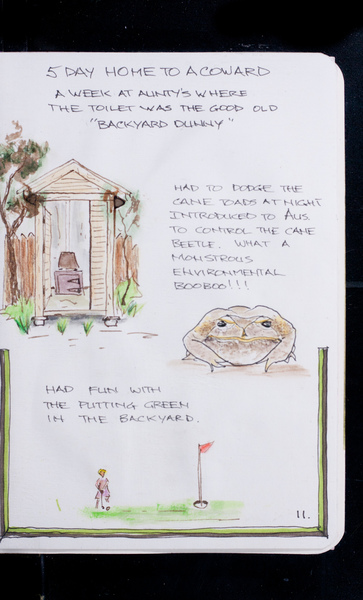 5 DAY HOME TO A COWARD
A WEEK AT AUNTY'S WHERE
THE TOILET WAS THE GOOD OLD
"BACKYARD DUNNY"
HAD TO DODGE THE
CANE TOADS AT NIGHT
INTRODUCED TO AUS.
TO CONTROL THE CANE
BEETLE. WHAT A
MONSTROUS
ENVIRONMENTAL
BOOBOO!!!
HAD FUN WITH
THE PUTTING GREEN
IN THE BACKYARD.
11.